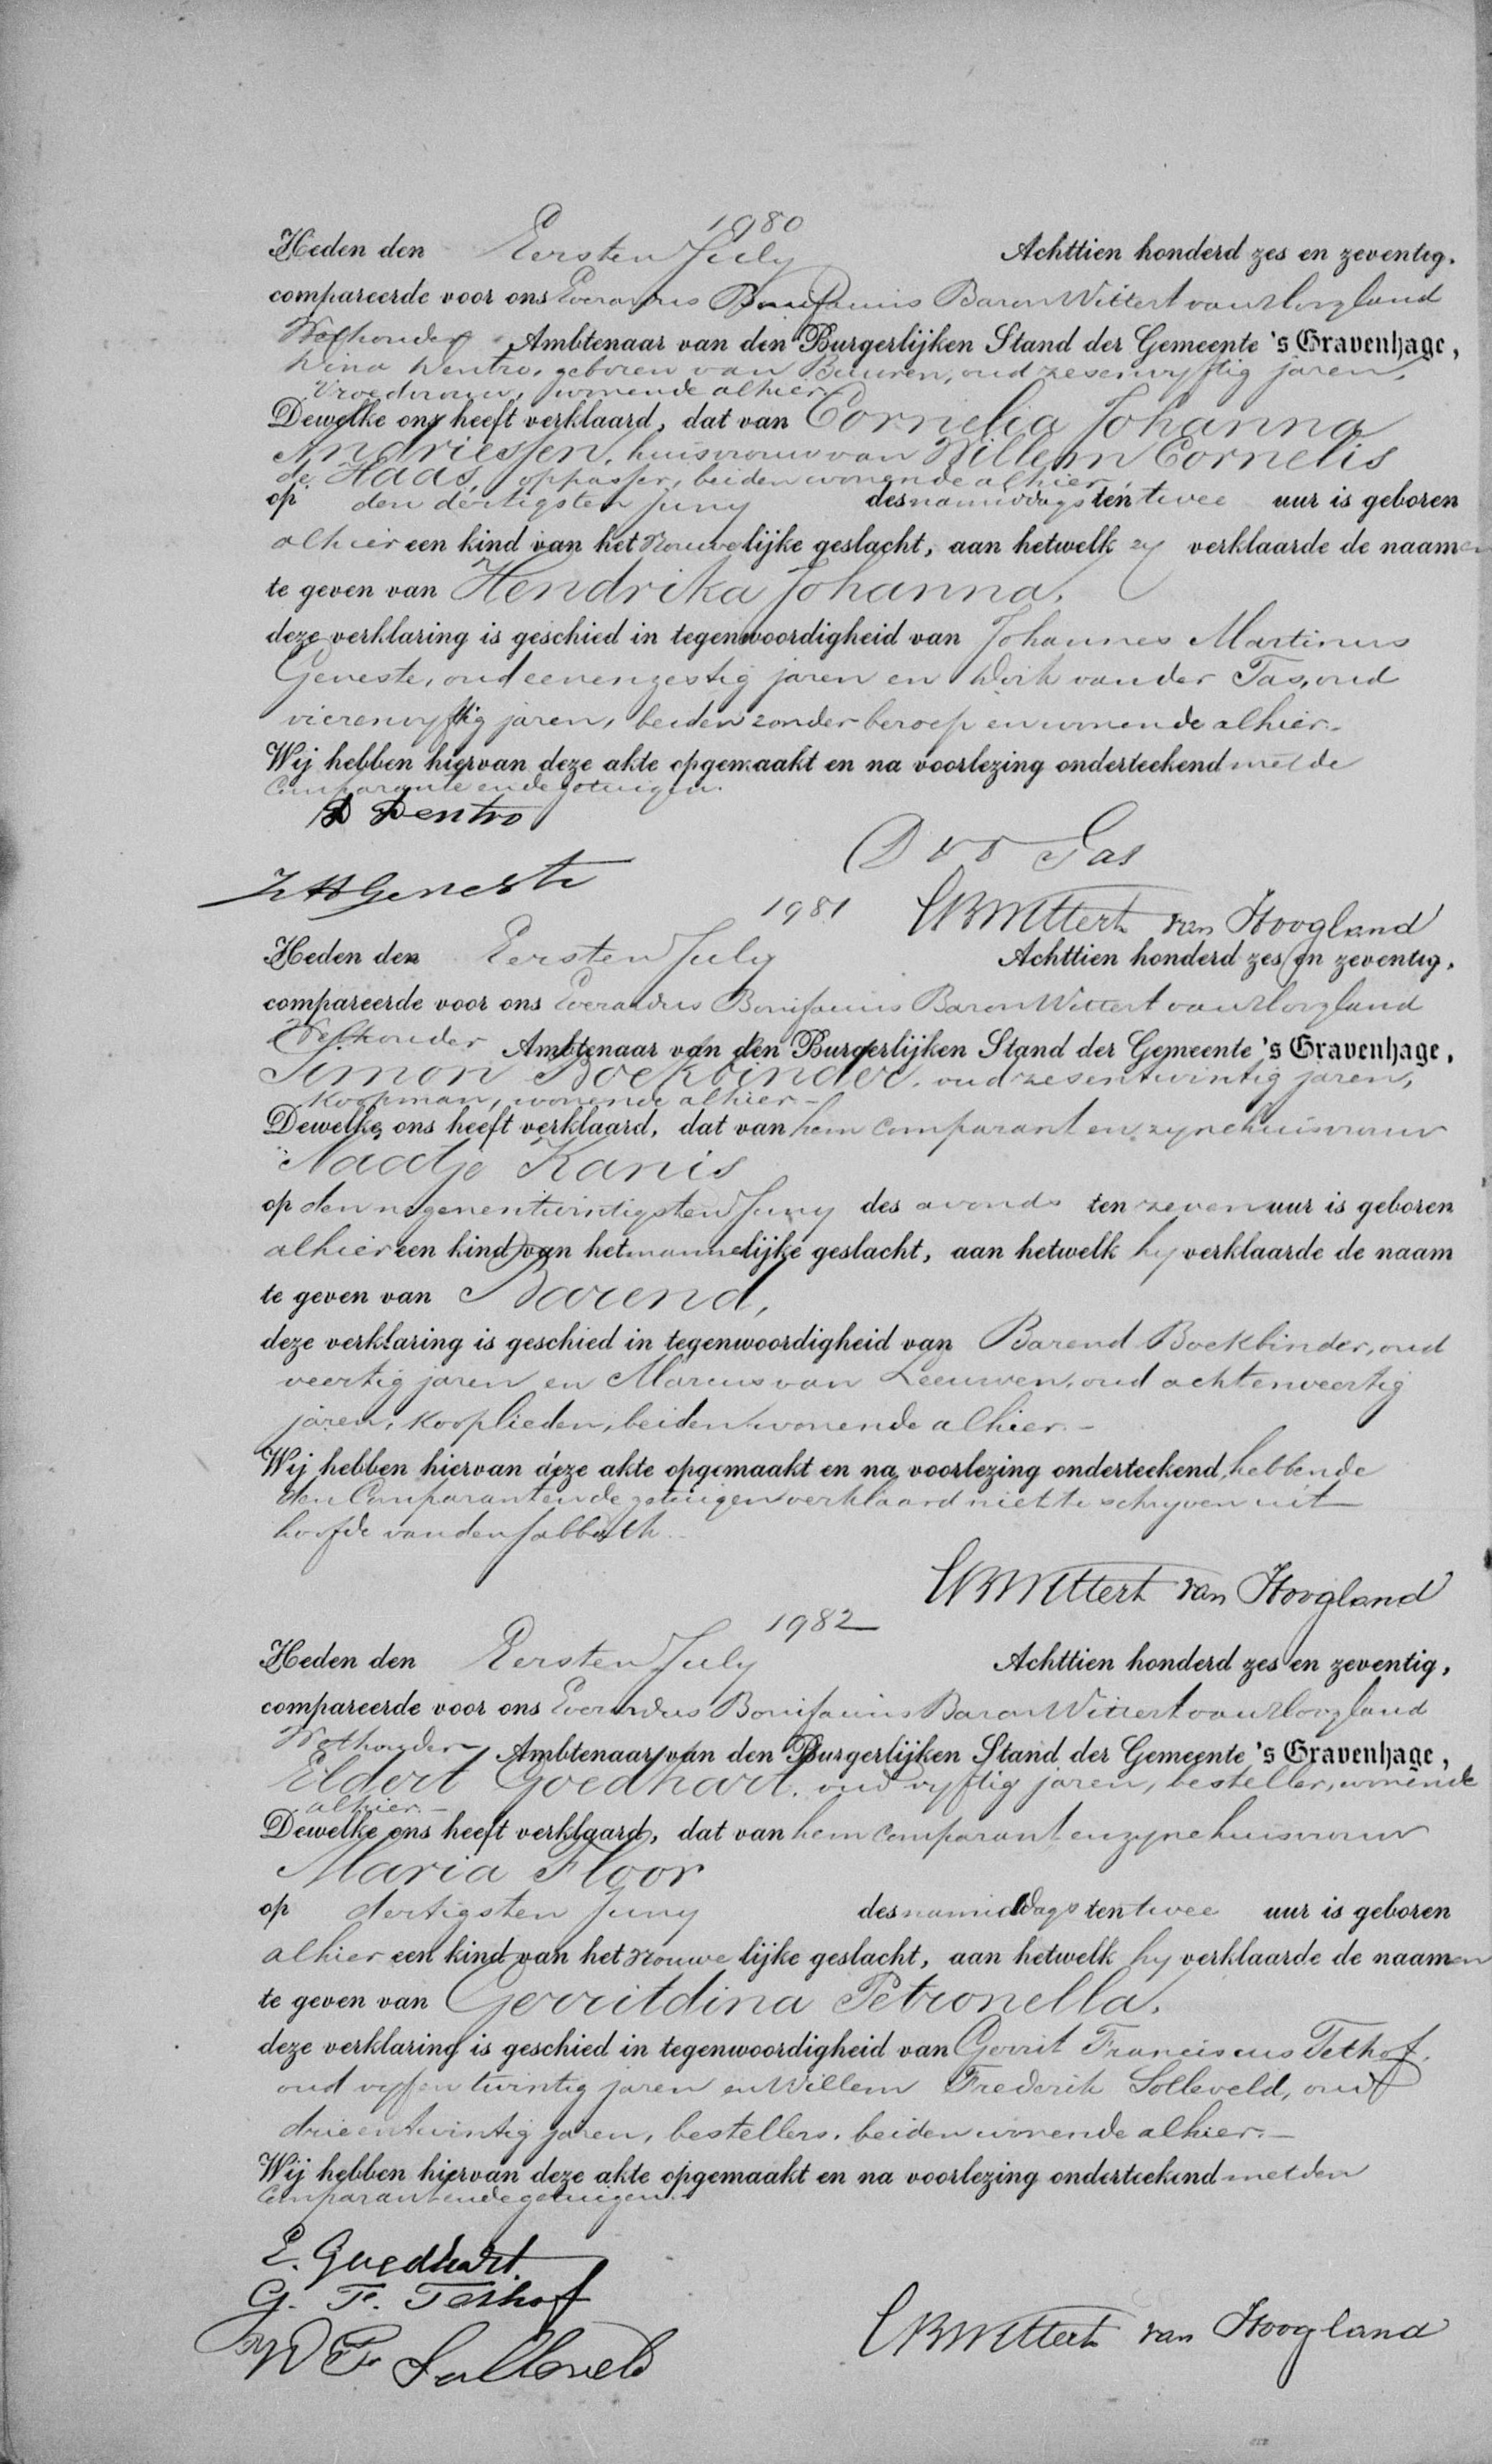 1980
Heden den Eersten July Achttien honderd zes en zeventig.
compareerde voor ons Everardus Bonifacius Baron Wittert van Hoogland
Wethouder Ambtenaar van den Burgerlijken Stand der Gemeente 's Gravenhage,
Dina Dentro, geboren van Buuren, oud zesenvyftig jaren,
Vroedvrouw, wonende alhier
Dewelke ons heeft verklaard, dat van Cornelia Johanna
Andriessen, huisvrouw van Willem Cornelis
de Haas, oppasser, beiden wonende alhier,
op den dertigsten Juny des namiddags ten twee uur is geboren
alhier een kind van het vrouwelijke geslacht, aan hetwelk zy verklaarde de naamen
te geven van Hendrika Johanna,
deze verklaring is geschied in tegenwoordigheid van Johannes Martinus
Geneste, oud eenenzestig jaren en Dirk van der Tas, oud
vierenvyftig jaren, beiden zonder beroep en wonende alhier.-
Wij hebben hiervan deze akte opgemaakt en na voorlezing onderteekend met de
Comparante en de getuigen.
D Dentro
D v d Tas
Geneste
1981
EBWittert van Hoogland
Heden den Eersten July Achttien honderd zes en zeventig.
compareerde voor ons Everardus Bonifacius Baron Wittert van Hoogland
Wethouder Ambtenaar van den Burgerlijken Stand der Gemeente 's Gravenhage,
Simon Boekbinder, oud zesentwintig jaren,
Koopman, wonende alhier -
Dewelke ons heeft verklaard, dat van hem Comparant en zyne huisvrouw
Naatje Kanis
op den negenentwintigsten Juny des avonds ten zeven uur is geboren
alhier een kind van het mannelijke geslacht, aan hetwelk hy verklaarde de naam
te geven van Barend,
deze verklaring is geschied in tegenwoordigheid van Barend Boekbinder, oud
veertig jaren en Marcus van Leeuwen, oud achtenveertig
jaren, kooplieden, beiden wonende alhier.-
Wij hebben hiervan deze akte opgemaakt en na voorlezing onderteekend, hebbende
den Comparant en de getuigen verklaard niet te schryven uit
hoofde van den sabbath.
EBWittert van Hoogland
1982
Heden den Eersten July Achttien honderd zes en zeventig,
compareerde voor ons Everardus Bonifacius Baron Wittert van Hoogland
Wethouder Ambtenaar van den Burgerlijken Stand der Gemeente 's Gravenhage,
Eldert Goedhart, oud vyftig jaren, besteller, wonende
alhier.-
Dewelke ons heeft verklaard, dat van hem Comparant en zyne huisvrouw
Maria Floor
op dertigsten Juny des namiddags ten twee uur is geboren
alhier een kind van het vrouwelijke geslacht, aan hetwelk hy verklaarde de naamen
te geven van Gerritdina Petronella,
deze verklaring is geschied in tegenwoordigheid van Gerrit Franciscus Tethof,
oud vyfentwintig jaren en Willem Frederik Solleveld, oud
drieentwintig jaren, bestellers, beiden wonende alhier.-
Wij hebben hiervan deze akte opgemaakt en na voorlezing onderteekend met den
Comparant en de getuigen.
E. Goedhart.
G. F. Tethof
W F Solleveld
EBWittert van Hoogland